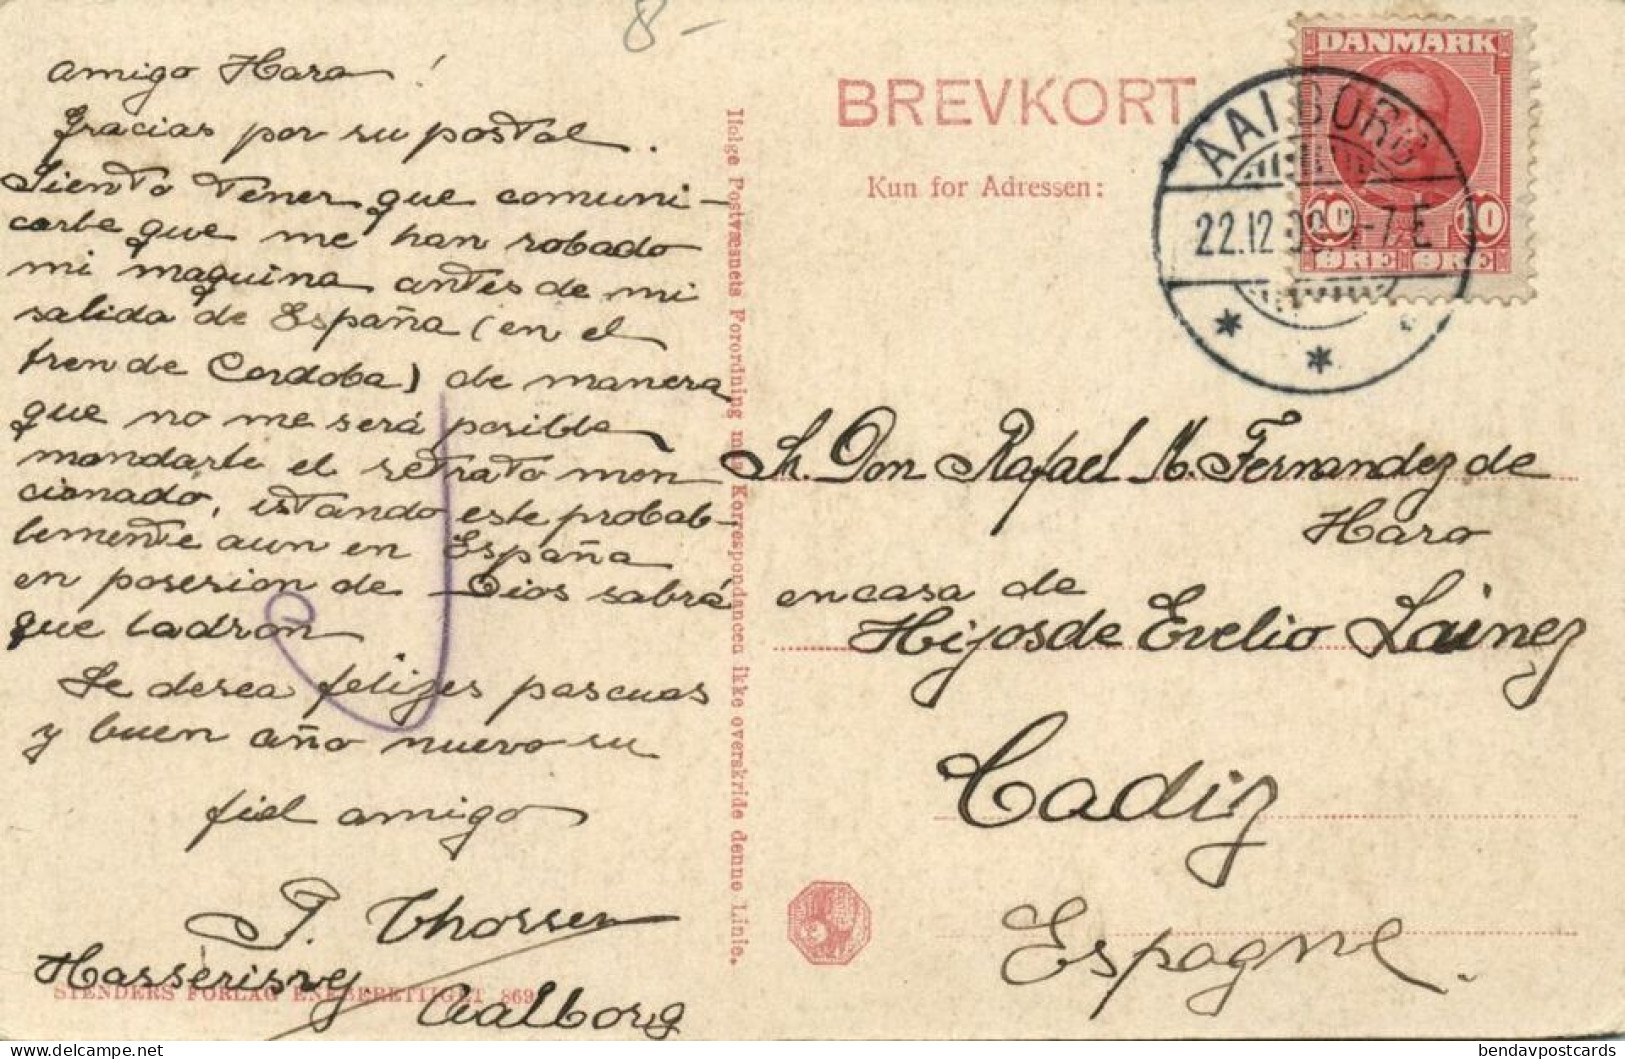 8-
amigo Haro!
Gracias por su postal.
Siento tener que comuni-
carle que me han robado
mi maquina antes de mi
salida de España (en el
tren de Cordoba) de manera
que no me será posible
mandarle el retrato men
cionado, estando este probab-
lemente aun en España
en posesion de Dios sabrá
que ladron
Le desea felizes pascuas
y buen año nuevo su
fiel amigo
P. Thorssen
Hasserisvej
Aalborg
STENDERS FORLAG ENEBERETTIGET 869
Ifølge Postvæsnets Forordning maa Korrespondancen ikke overskride denne Linie.
BREVKORT
Kun for Adressen:
DANMARK
10 10
ØRE ØRE
AALBORG
22.12.09. 4-7 E
Sr. Don Rafael M. Fernandez de
Haro
en casa de
Hijos de Evelio Lainez
Cadiz
Espagne.
bendavpostcards